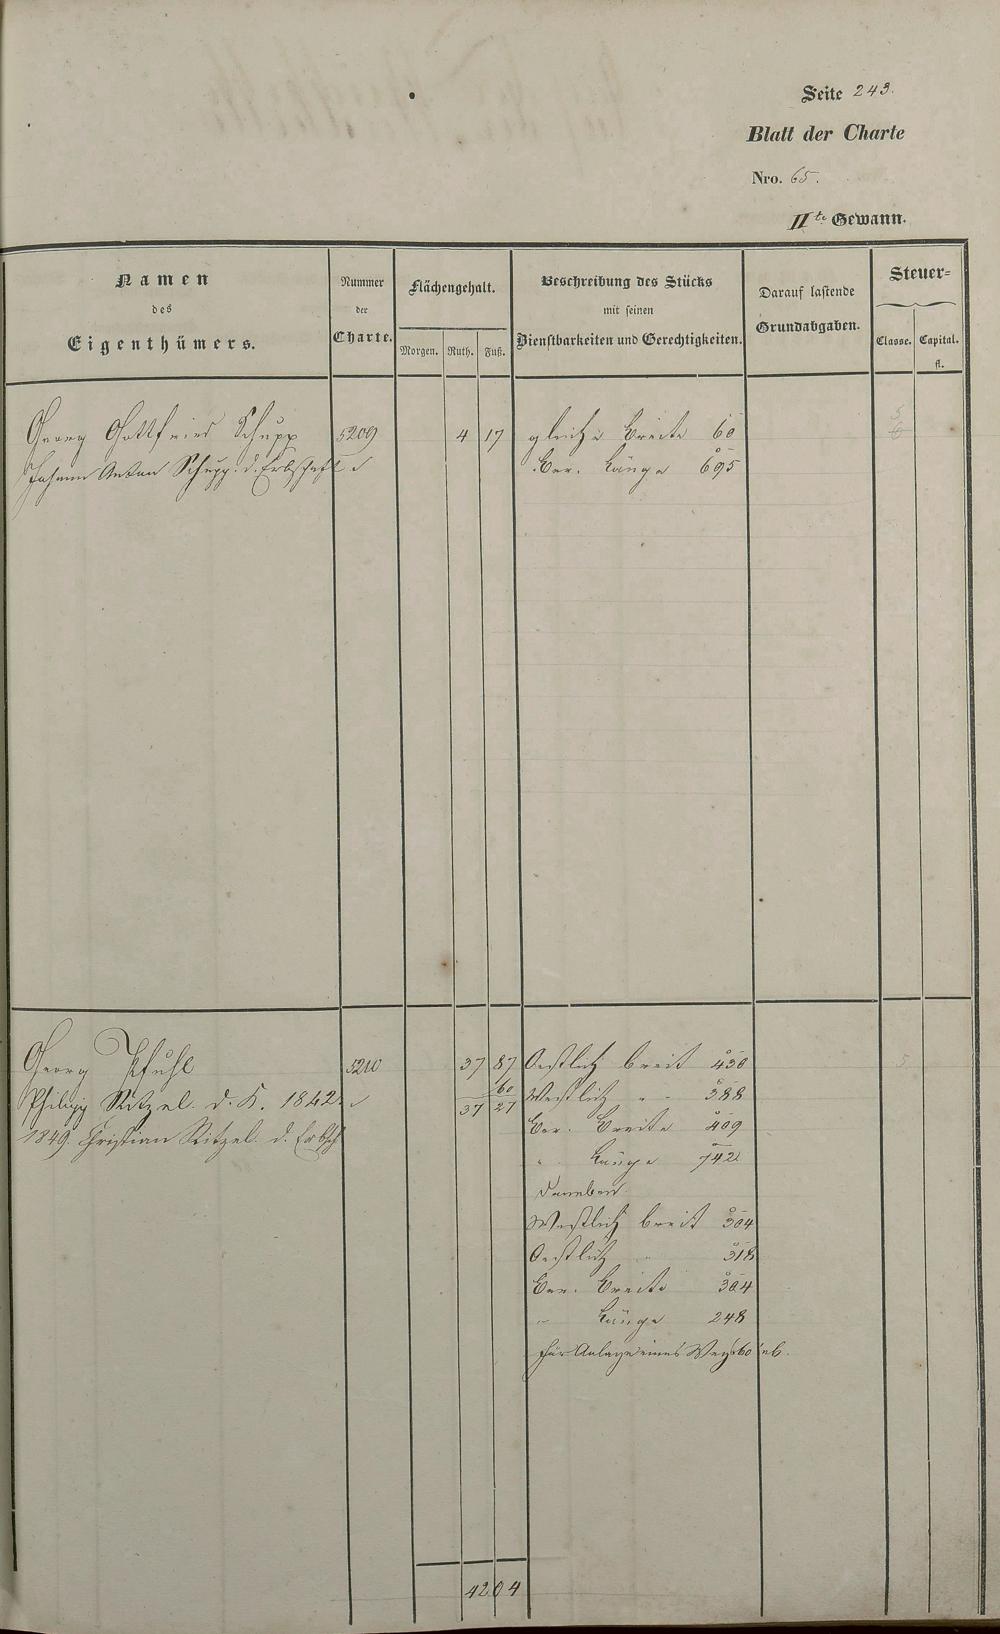 Seite 243.
Blatt der Charte
Nro. 65.
II te Gewann.
Namen
des
Eigenthümers.
Nummer
der
Charte.
Flächengehalt.
Morgen. Ruth. Fuß.
Beschreibung des Stücks
mit seinen
Dienstbarkeiten und Gerechtigkeiten.
Darauf lastende
Grundabgaben.
Steuer=
Classe. Capital.
fl.
Georg Gottfried Schupp 5209 4 17 gleiche Breite 60
Johann Anton Schupp. d. Erbschaft Ver. Länge 695
Georg Pfuhl 5210 37 87 Oestlich breit 430
Philipp Ritzel. d. K. 1842. 60 Westlich " " 388
37 27
1849. Christian Ritzel. d. Erbsch Ver. Breite 409
" Länge 742
Daneben
Westlich breit 304
Oestlich " 318
Ver. Breite 304
" Länge 248
für Anlage eines Wegs 60' ab.
42 04